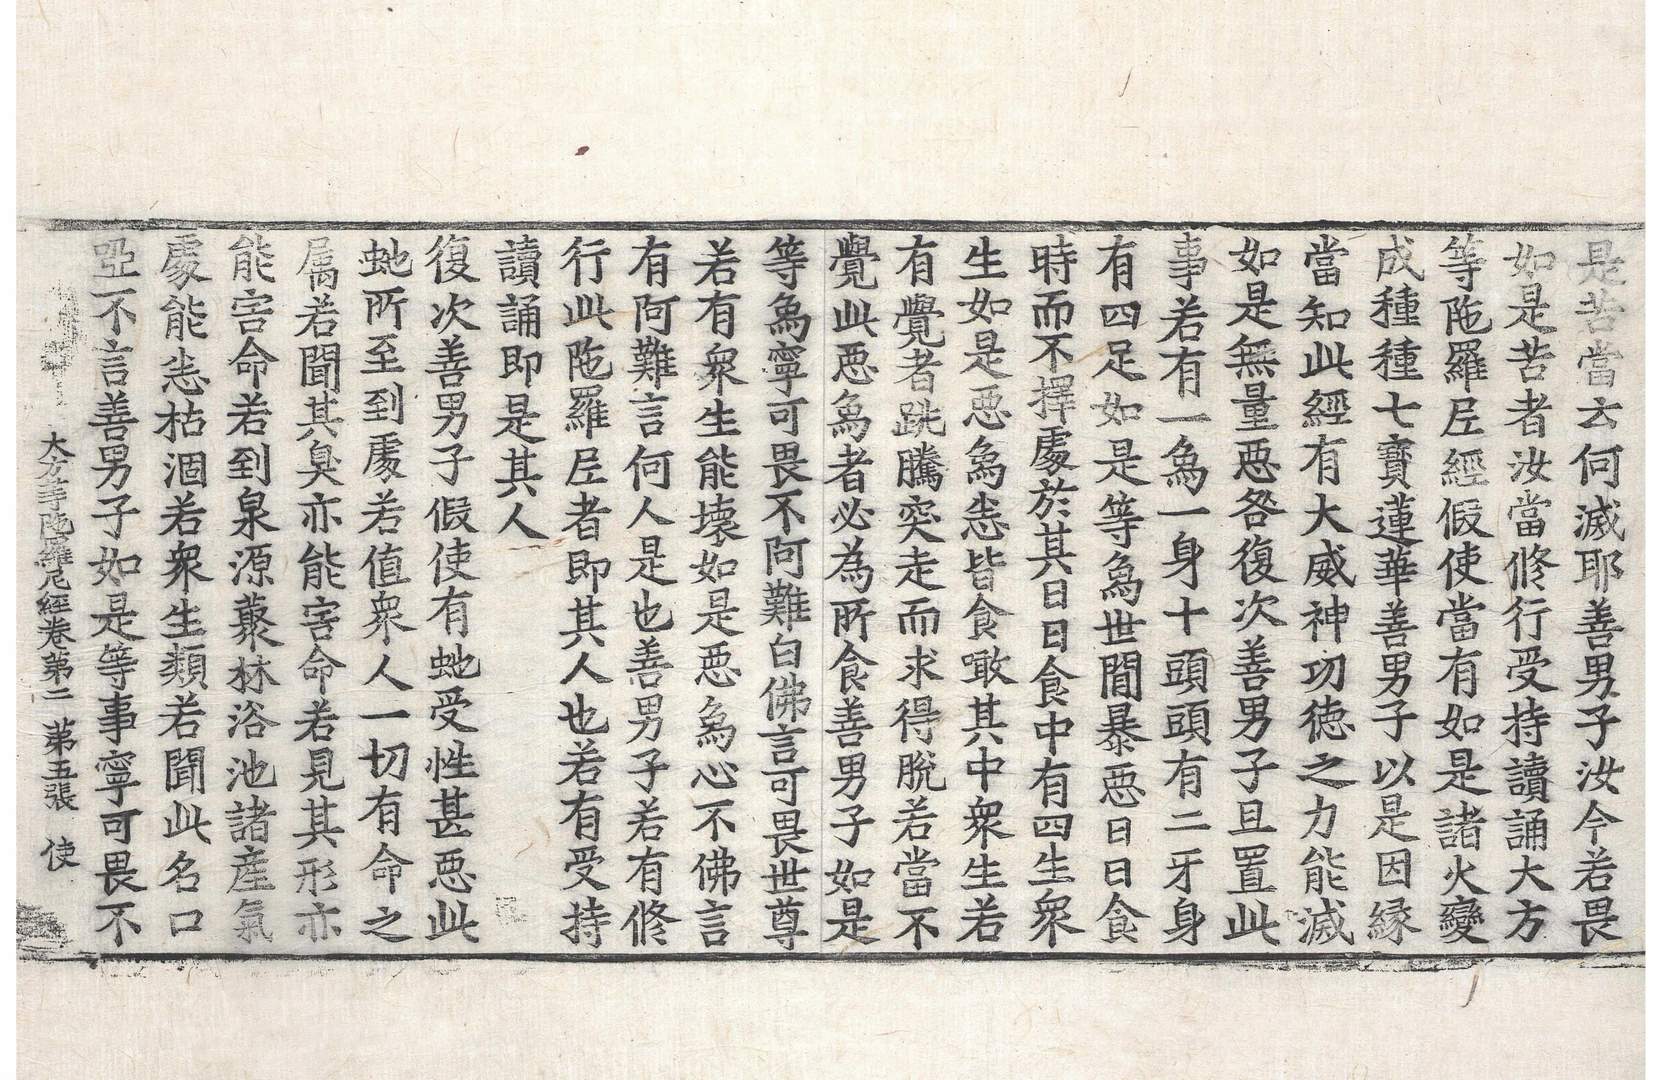 是苦當云何滅耶善男子汝今若畏
如是苦者汝當修行受持讀誦大方
等陁羅尼經假使當有如是諸火變
成種種七寶蓮華善男子以是因緣
當知此經有大威神功德之力能滅
如是無量惡咎復次善男子且置此
事若有一鳥一身十頭頭有二牙身
有四足如是等鳥世間暴惡日日食
時而不擇處於其日日食中有四生衆
生如是惡鳥恙皆食噉其中衆生若
有覺者跳騰突走而求得脫若當不
覺此惡鳥者必為所食善男子如是
等鳥寧可畏不阿難白佛言可畏世尊
若有衆生能壞如是惡鳥心不佛言
有阿難言何人是也善男子若有修
行此陁羅尼者即其人也若有受持
讀誦即是其人
復次善男子假使有虵受性甚惡此
虵所至到處若值衆人一切有命之
屬若聞其臭亦能害命若見其形亦
能害命若到泉源藂林浴池諸產氣
處能恙枯涸若衆生類若聞此名口
啞不言善男子如是等事寧可畏不
大方等陁羅尼經卷第二 第五張 使